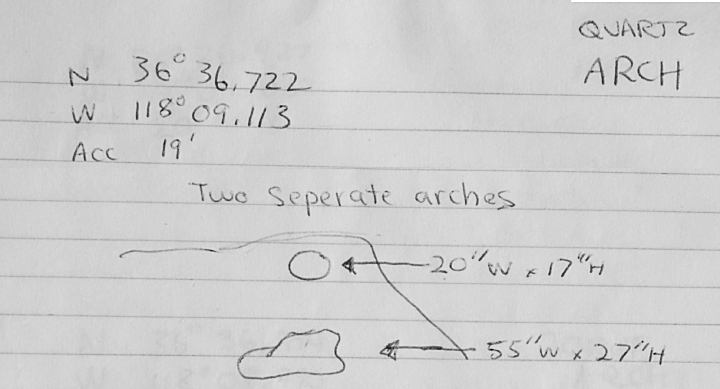 QUARTZ
ARCH
N 36° 36.722
W 118° 09.113
Acc 19'
Two Seperate arches
20"W x 17"H
55"W x 27"H